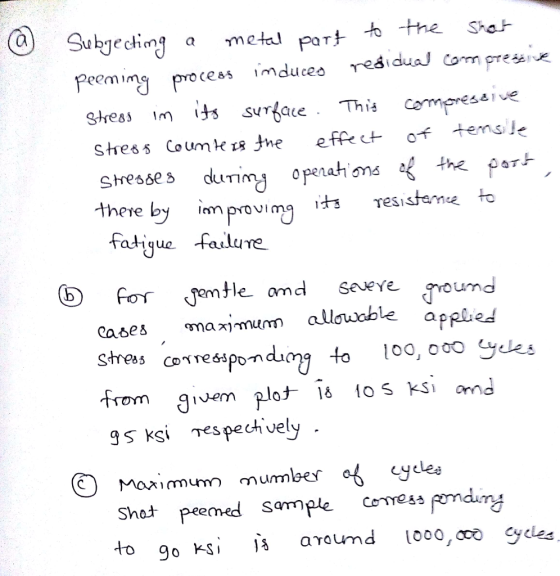 (a) Subjecting a metal part to the shot
peening process induces residual compressive
stress in its surface. This compressive
stress counters the effect of tensile
stresses during operations of the part,
there by improving its resistance to
fatigue failure
(b) for gentle and severe ground
cases, maximum allowable applied
stress corresponding to 100,000 cycles
from given plot is 105 ksi and
95 ksi respectively.
(c) Maximum number of cycles
Shot peened sample corressponding
to 90 ksi is around 1000,000 cycles.